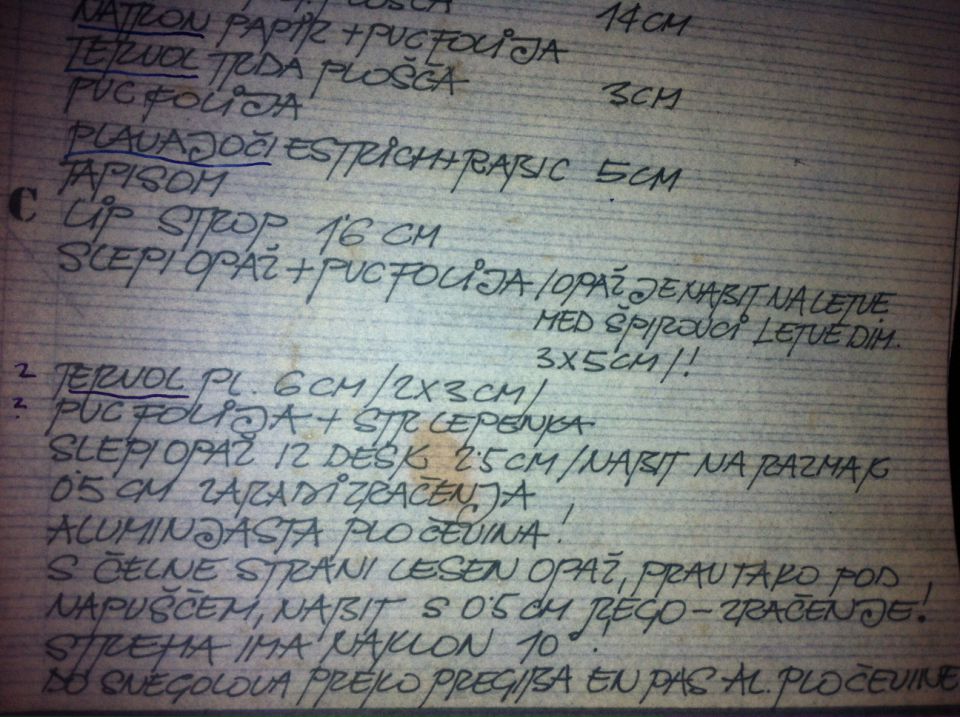 PLOŠČA 14CM
NATRON PAPIR + PVC FOLIJA
TERVOL TRDA PLOŠČA 3CM
PVC FOLIJA
PLAVAJOČI ESTRICH + RABIC 5CM
TAPISOM
C LIP STROP 16 CM
SLEPI OPAŽ + PVC FOLIJA /OPAŽ JE NABIT NA LETVE
MED ŠPIROVCI LETVE DIM.
3X5CM/!
2 TERVOL PL. 6CM /2X3CM/
? PVC FOLIJA + STR LEPENKA
SLEPI OPAŽ IZ DESK 2.5CM /NABIT NA RAZMAK
0.5 CM ZARADI ZRAČENJA
ALUMINJASTA PLOČEVINA!
S ČELNE STRANI LESEN OPAŽ, PRAV TAKO POD
NAPUŠČEM, NABIT S 0.5 CM REGO - ZRAČENJE!
STREHA IMA NAKLON 10°.
DO SNEGOLOVA PREKO PREGIBA EN PAS AL. PLOČEVINE